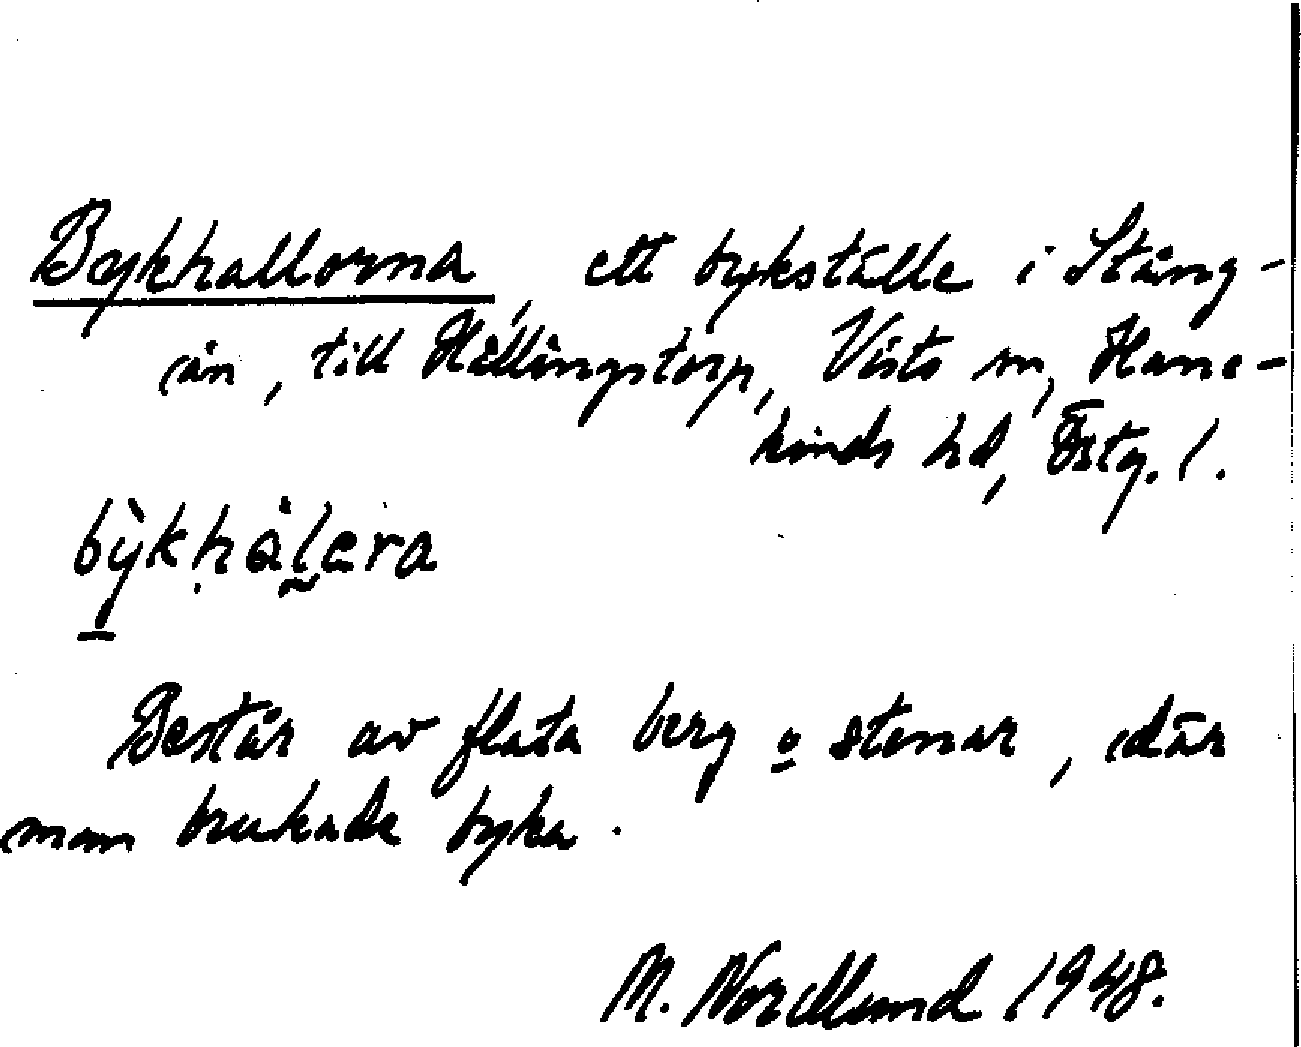 Bykhallorna, ett bykställe i Stång-
ån, till Hällingstorp, Vists sn, Hane-
kinds hd, Östg. l.
bỳkhàlera
Består av flata berg o stenar, där
man brukade byka.
M. Nordlund 1948.